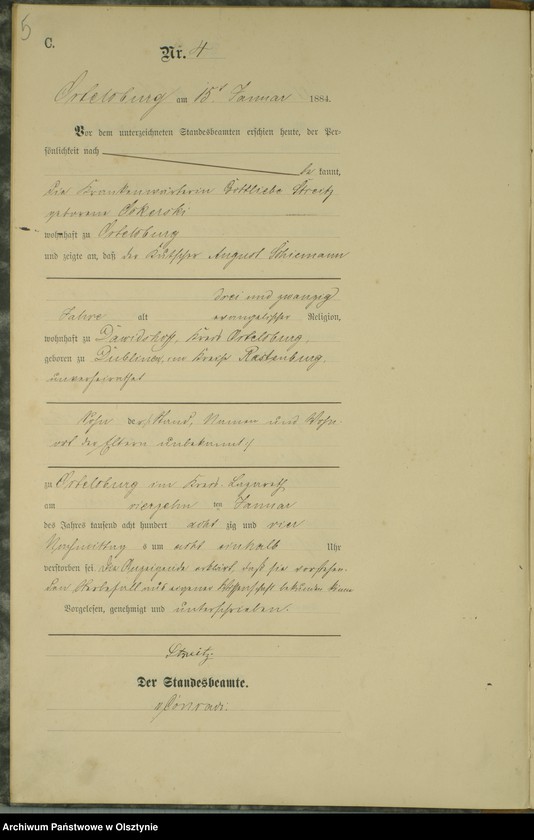 5
C.
Nr. 4
Ortelsburg am 15t Januar 1884.
Vor dem unterzeichneten Standesbeamten erschien heute, der Per-
sönlichkeit nach
be kannt,
die Krankenwärterin Gottliebe Streitz
geborene Sokerski
wohnhaft zu Ortelsburg
und zeigte an, daß der Kutscher August Schiemann
drei und zwanzig
Jahre alt evangelischer Religion,
wohnhaft zu Davidshoff, Kreis Ortelsburg,
geboren zu Dublinen, im Kreis Rastenburg,
unverheirathet
Sohn der (Stand, Namen und Wohn-
ort der Eltern unbekannt)
zu Ortelsburg im Kreis Lazareth
am vierzehn ten Januar
des Jahres tausend acht hundert acht zig und vier
Nachmittag s um acht einhalb Uhr
verstorben sei. Die Anzeigende erklärt, daß sie vorstehen-
den Sterbefall aus eigener Wissenschaft bekunden kann
Vorgelesen, genehmigt und unterschrieben.
Streitz.
Der Standesbeamte.
v Conradi.
Archiwum Państwowe w Olsztynie